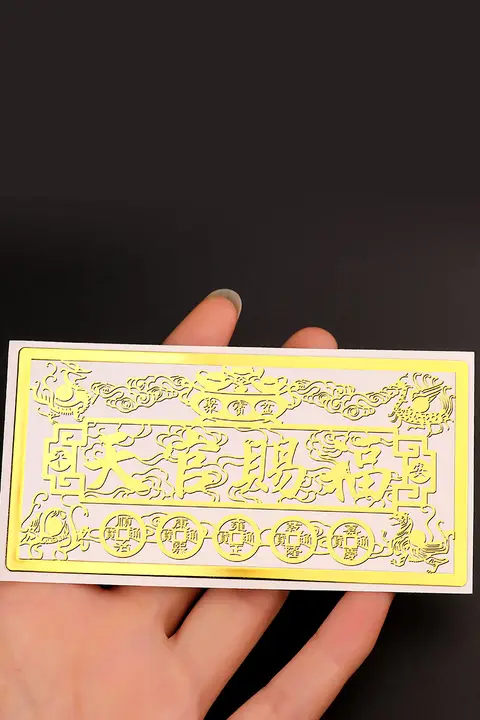 聚寶盆
天官賜福
順治通寶 康熙通寶 雍正通寶 乾隆通寶 嘉慶通寶